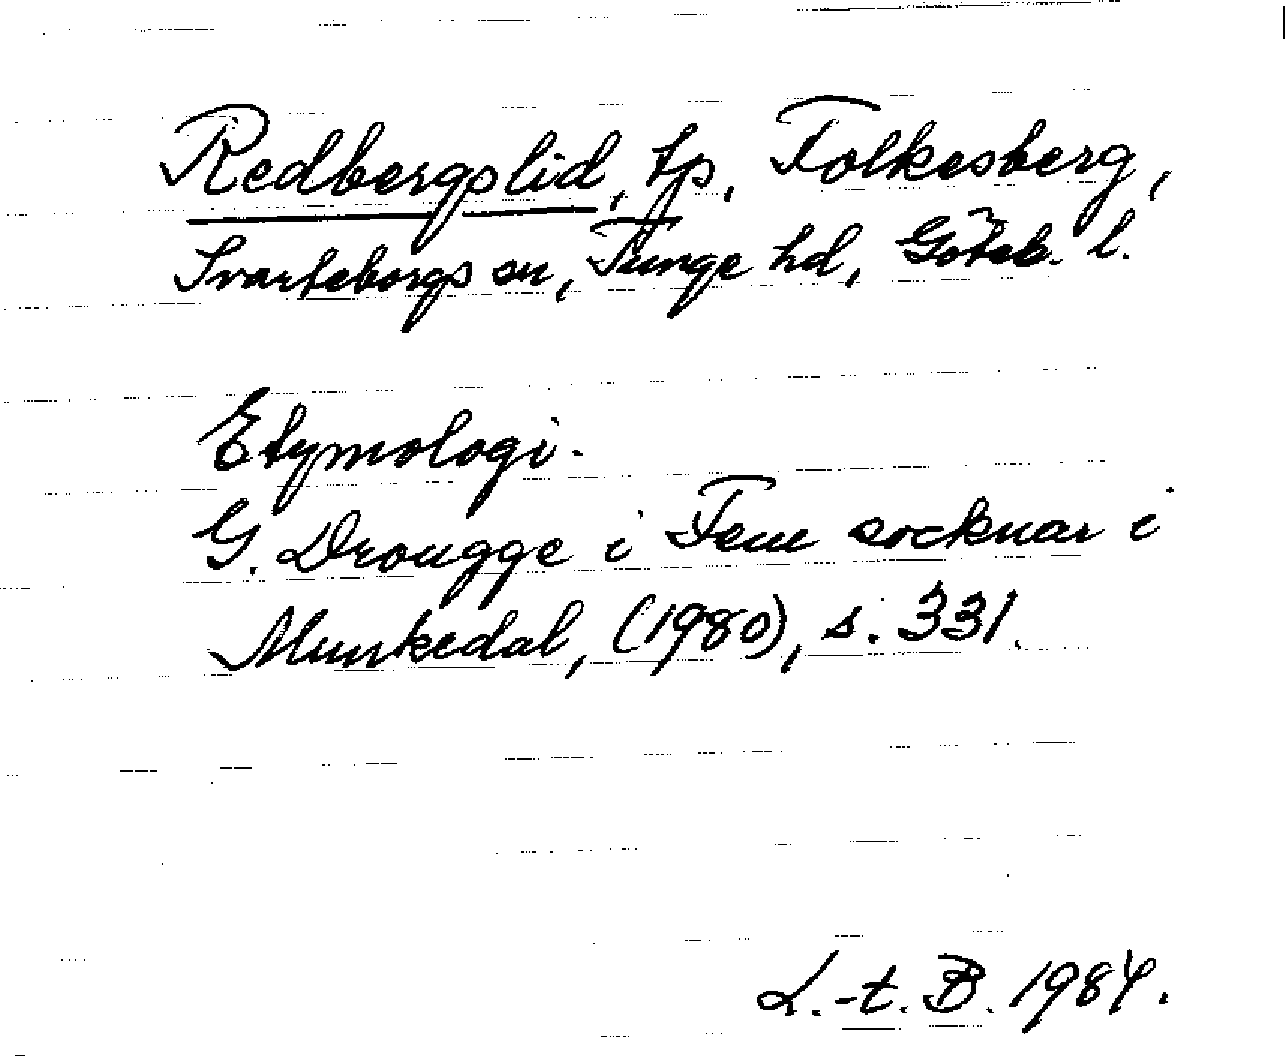 Redbergslid, tp. Folkesberg,
Svarteborgs sn, Tunge hd, Göteb. l.
Etymologi.
G. Drougge i Fem socknar i
Munkedal, (1980), s. 331.
L.-t. B. 1984.